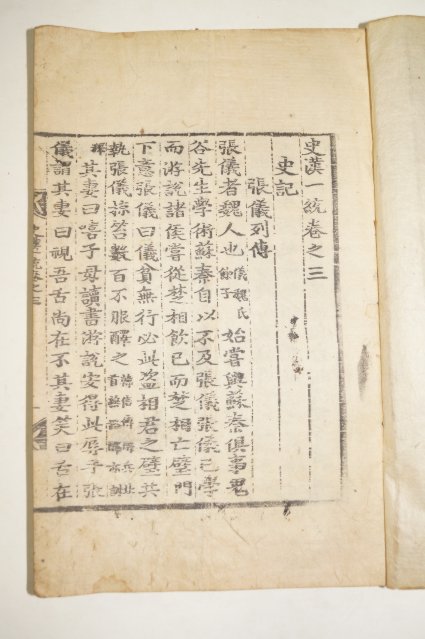 史漢一統卷之三
史記
張儀列傳
張儀者魏人也儀魏氏餘子始嘗與蘇秦俱事鬼
谷先生學術蘇秦自以不及張儀張儀已學
而游說諸侯嘗從楚相飮已而楚相亡璧門
下意張儀曰儀貧無行必此盜相君之璧共
執張儀掠笞數百不服醳之
其妻曰嘻子毋讀書游說安得此辱乎張
儀謂其妻曰視吾舌尚在不其妻笑曰舌在